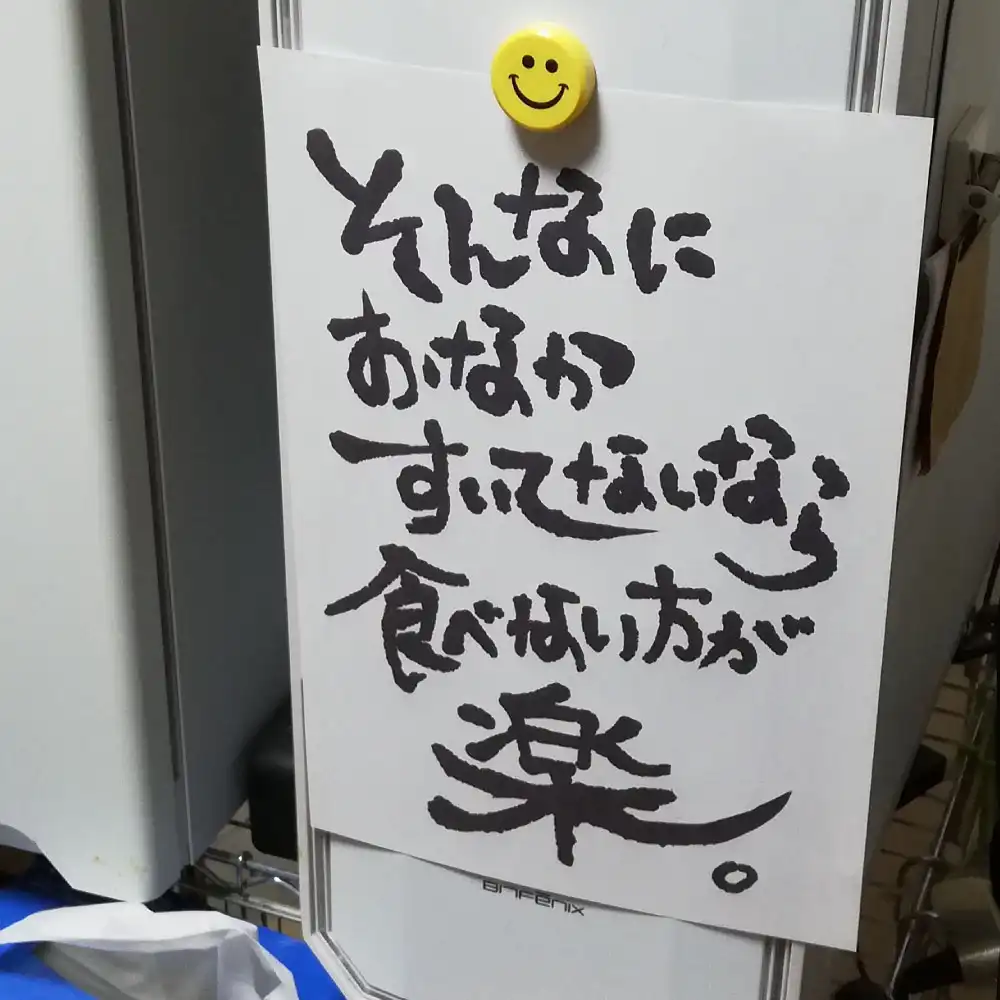 そんなに
おなか
すいてないなら
食べない方が
楽。
BitFenix